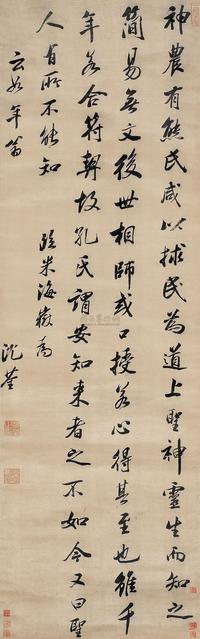 神農有熊氏咸以拯民為道上聖神靈生而知之
簡易無文後世相師或口授若心得其至也雖千
年若合符契故孔氏謂安知来者之不如今又曰聖
人有所不能知
云如年翁
臨米海嶽為
沈荃